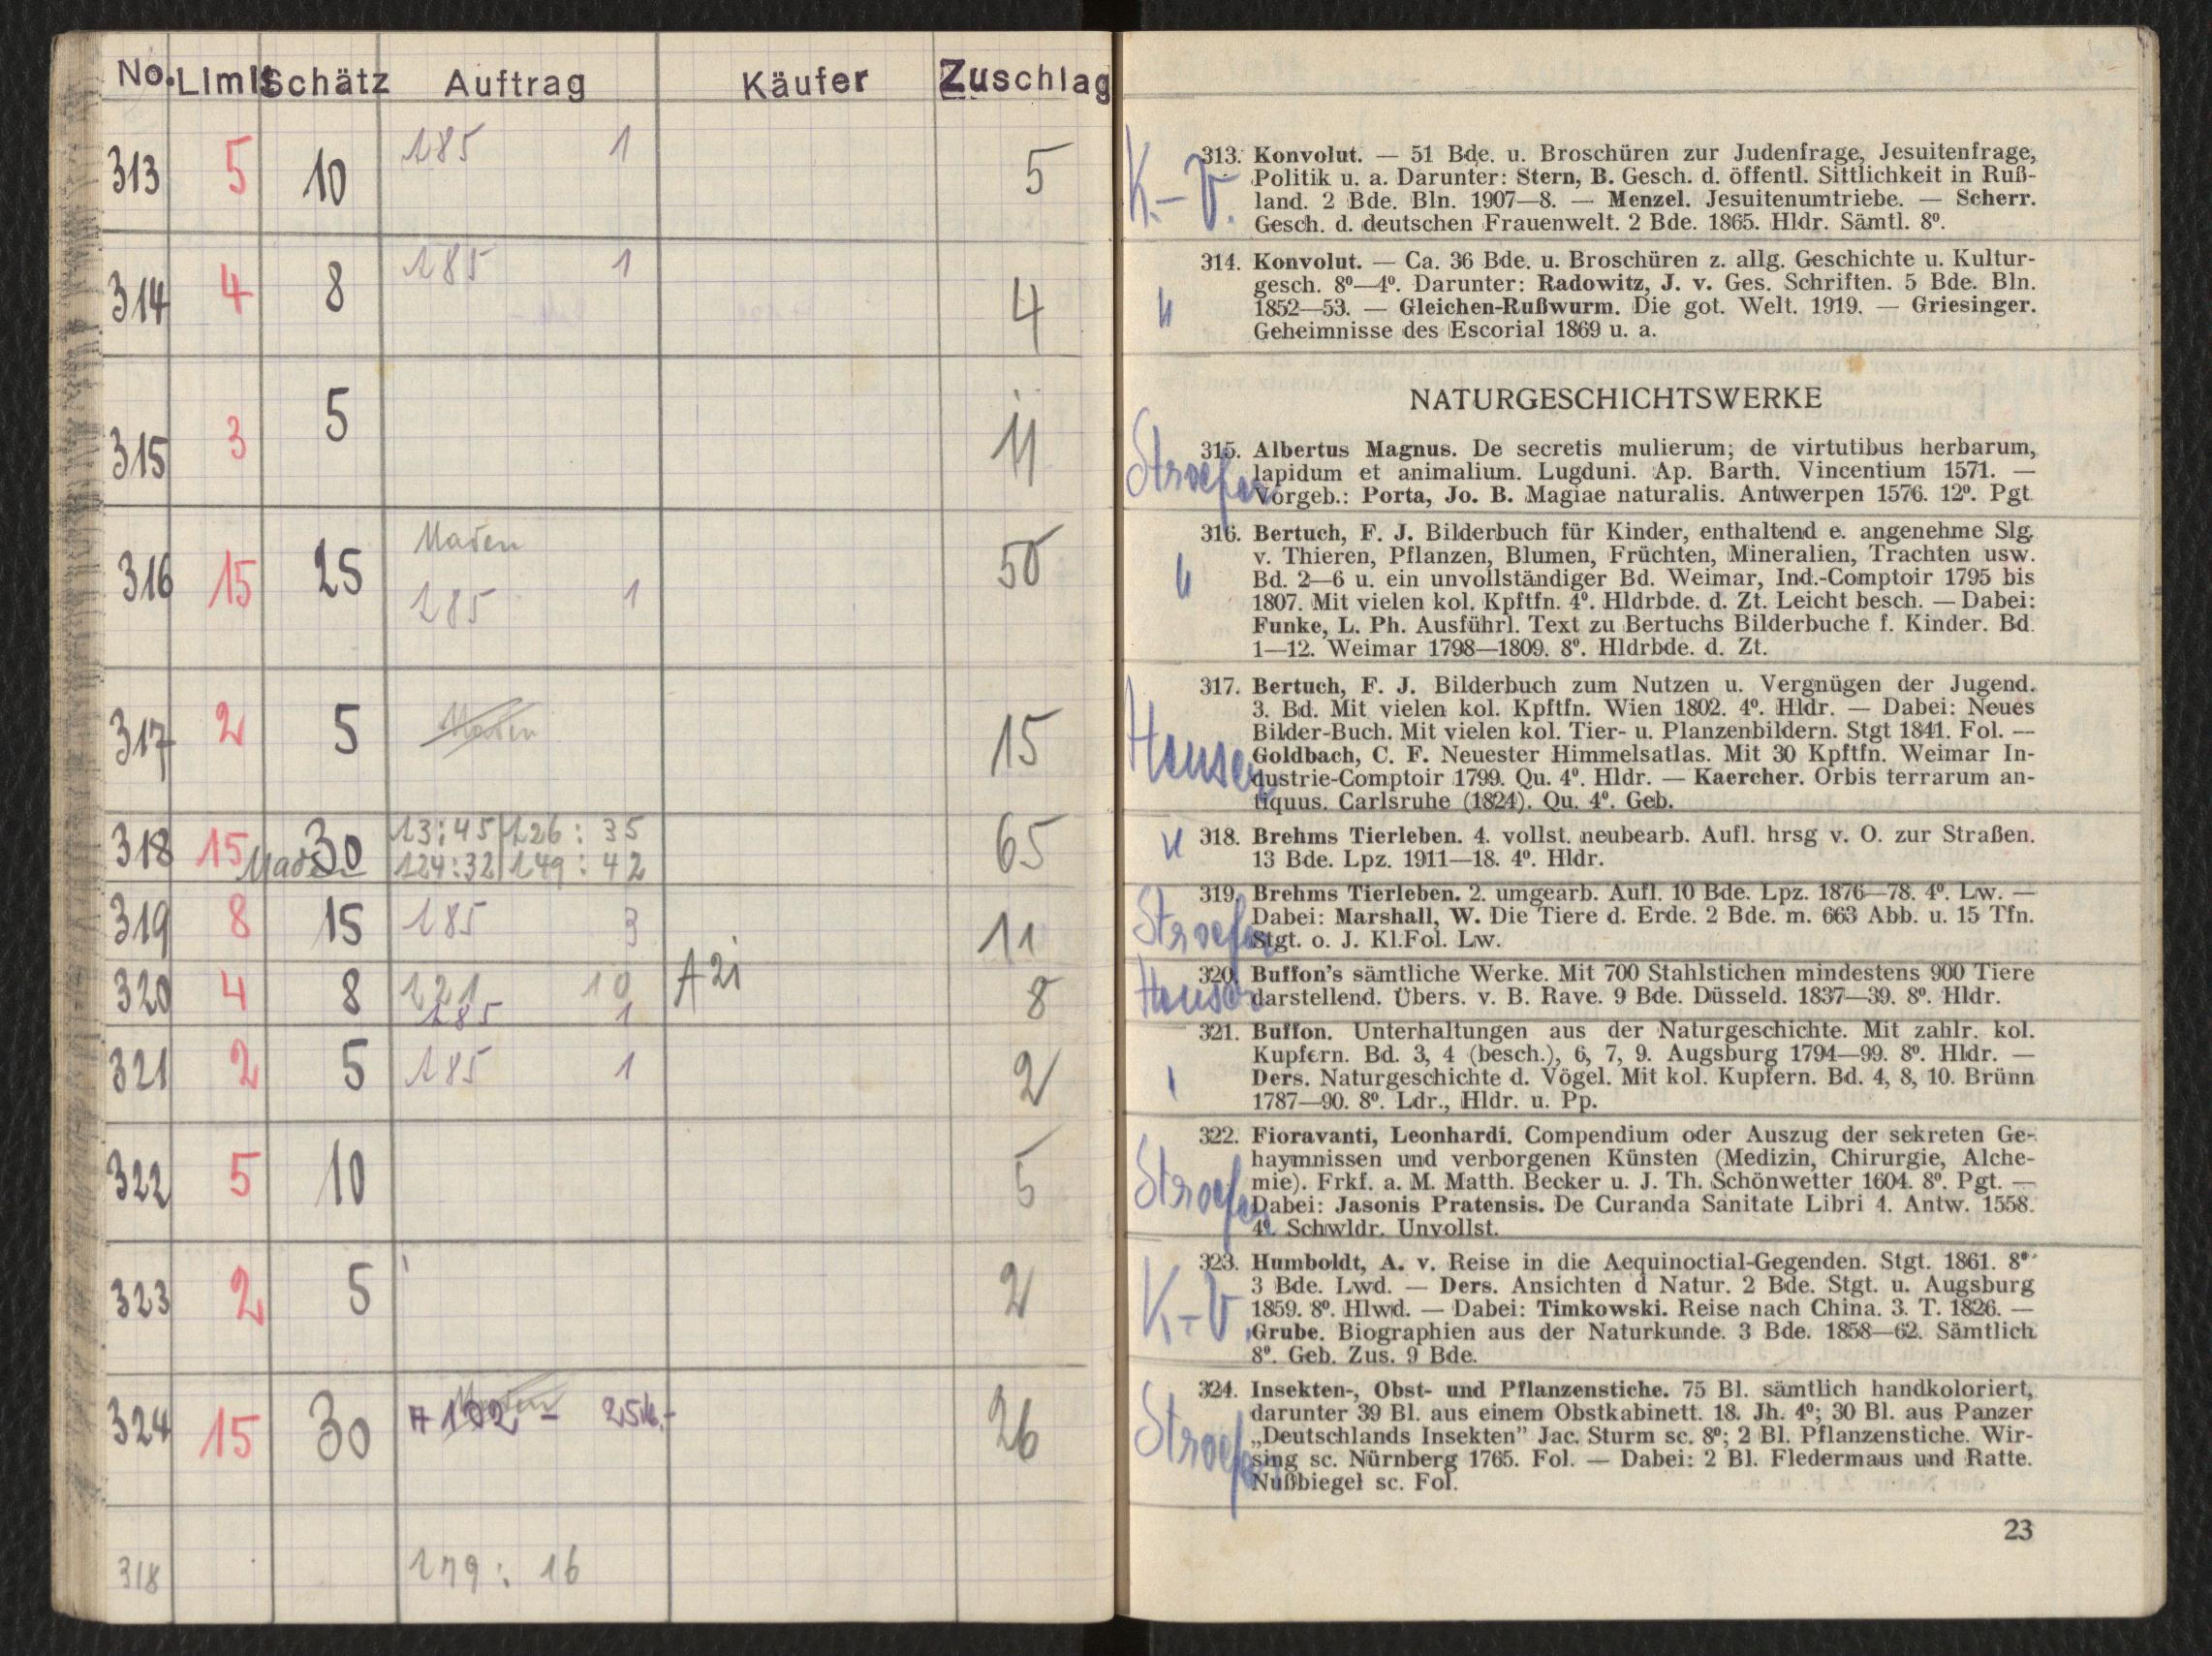 No. Limit Schätz Auftrag Käufer Zuschlag
313 5 10 185 1 5
314 4 8 185 1 4
315 3 5 11
316 15 25 Maden 50
185 1
317 2 5 Maden 15
318 15 30 13:45 126: 35 65
124:32 149: 42
319 8 15 185 3 11
320 4 8 121 10 A 21 8
185 1
321 2 5 185 1 2
322 5 10 5
323 2 5 2
324 15 30 A 102 - 25M.- 26
318 179: 16
K.-V.
313. Konvolut. — 51 Bde. u. Broschüren zur Judenfrage, Jesuitenfrage,
Politik u. a. Darunter: Stern, B. Gesch. d. öffentl. Sittlichkeit in Ruß-
land. 2 Bde. Bln. 1907—8. — Menzel. Jesuitenumtriebe. — Scherr.
Gesch. d. deutschen Frauenwelt. 2 Bde. 1865. Hldr. Sämtl. 8⁰.
314. Konvolut. — Ca. 36 Bde. u. Broschüren z. allg. Geschichte u. Kultur-
gesch. 8⁰—4⁰. Darunter: Radowitz, J. v. Ges. Schriften. 5 Bde. Bln.
1852—53. — Gleichen-Rußwurm. Die got. Welt. 1919. — Griesinger.
Geheimnisse des Escorial 1869 u. a.
NATURGESCHICHTSWERKE
Stroefer
315. Albertus Magnus. De secretis mulierum; de virtutibus herbarum,
lapidum et animalium. Lugduni. Ap. Barth. Vincentium 1571. —
Vorgeb.: Porta, Jo. B. Magiae naturalis. Antwerpen 1576. 12⁰. Pgt
316. Bertuch, F. J. Bilderbuch für Kinder, enthaltend e. angenehme Slg.
v. Thieren, Pflanzen, Blumen, Früchten, Mineralien, Trachten usw.
Bd. 2—6 u. ein unvollständiger Bd. Weimar, Ind.-Comptoir 1795 bis
1807. Mit vielen kol. Kpftfn. 4⁰. Hldrbde. d. Zt. Leicht besch. — Dabei:
Funke, L. Ph. Ausführl. Text zu Bertuchs Bilderbuche f. Kinder. Bd.
1—12. Weimar 1798—1809. 8⁰. Hldrbde. d. Zt.
Hauser
317. Bertuch, F. J. Bilderbuch zum Nutzen u. Vergnügen der Jugend.
3. Bd. Mit vielen kol. Kpftfn. Wien 1802. 4⁰. Hldr. — Dabei: Neues
Bilder-Buch. Mit vielen kol. Tier- u. Planzenbildern. Stgt 1841. Fol. —
Goldbach, C. F. Neuester Himmelsatlas. Mit 30 Kpftfn. Weimar In-
dustrie-Comptoir 1799. Qu. 4⁰. Hldr. — Kaercher. Orbis terrarum an-
tiquus. Carlsruhe (1824). Qu. 4⁰. Geb.
318. Brehms Tierleben. 4. vollst. neubearb. Aufl. hrsg v. O. zur Straßen.
13 Bde. Lpz. 1911—18. 4⁰. Hldr.
Stroefer
319. Brehms Tierleben. 2. umgearb. Aufl. 10 Bde. Lpz. 1876—78. 4⁰. Lw. —
Dabei: Marshall, W. Die Tiere d. Erde. 2 Bde. m. 663 Abb. u. 15 Tfn.
Stgt. o. J. Kl.Fol. Lw.
Hauser
320. Buffon's sämtliche Werke. Mit 700 Stahlstichen mindestens 900 Tiere
darstellend. Übers. v. B. Rave. 9 Bde. Düsseld. 1837—39. 8⁰. Hldr.
321. Buffon. Unterhaltungen aus der Naturgeschichte. Mit zahlr. kol.
Kupfern. Bd. 3, 4 (besch.), 6, 7, 9. Augsburg 1794—99. 8⁰. Hldr. —
Ders. Naturgeschichte d. Vögel. Mit kol. Kupfern. Bd. 4, 8, 10. Brünn
1787—90. 8⁰. Ldr., Hldr. u. Pp.
Stroefer
322. Fioravanti, Leonhardi. Compendium oder Auszug der sekreten Ge-
haymnissen und verborgenen Künsten (Medizin, Chirurgie, Alche-
mie). Frkf. a. M. Matth. Becker u. J. Th. Schönwetter 1604. 8⁰. Pgt. —
Dabei: Jasonis Pratensis. De Curanda Sanitate Libri 4. Antw. 1558.
4⁰. Schwldr. Unvollst.
K-V
323. Humboldt, A. v. Reise in die Aequinoctial-Gegenden. Stgt. 1861. 8⁰
3 Bde. Lwd. — Ders. Ansichten d Natur. 2 Bde. Stgt. u. Augsburg
1859. 8⁰. Hlwd. — Dabei: Timkowski. Reise nach China. 3. T. 1826. —
Grube. Biographien aus der Naturkunde. 3 Bde. 1858—62. Sämtlich
8⁰. Geb. Zus. 9 Bde.
Stroefer
324. Insekten-, Obst- und Pflanzenstiche. 75 Bl. sämtlich handkoloriert,
darunter 39 Bl. aus einem Obstkabinett. 18. Jh. 4⁰; 30 Bl. aus Panzer
„Deutschlands Insekten” Jac. Sturm sc. 8⁰; 2 Bl. Pflanzenstiche. Wir-
sing sc. Nürnberg 1765. Fol. — Dabei: 2 Bl. Fledermaus und Ratte.
Nußbiegel sc. Fol.
23